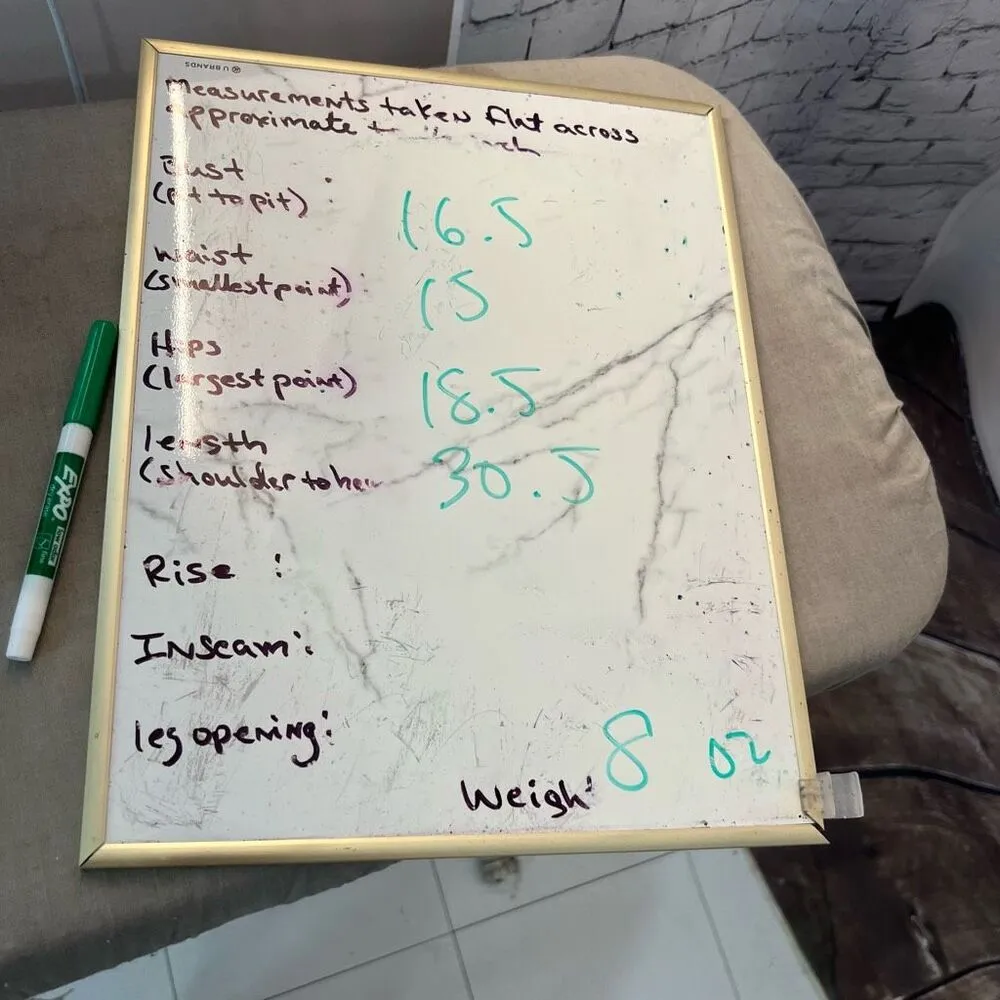 U BRANDS
Measurements taken flat across
approximate
Bust :
(Pit to pit) 16.5
waist
(smallest point) : 15
Hips
(largest point) 18.5
length
(shoulder to 30.5
Rise :
INseam :
leg opening :
Weigh 8 oz
EXPO